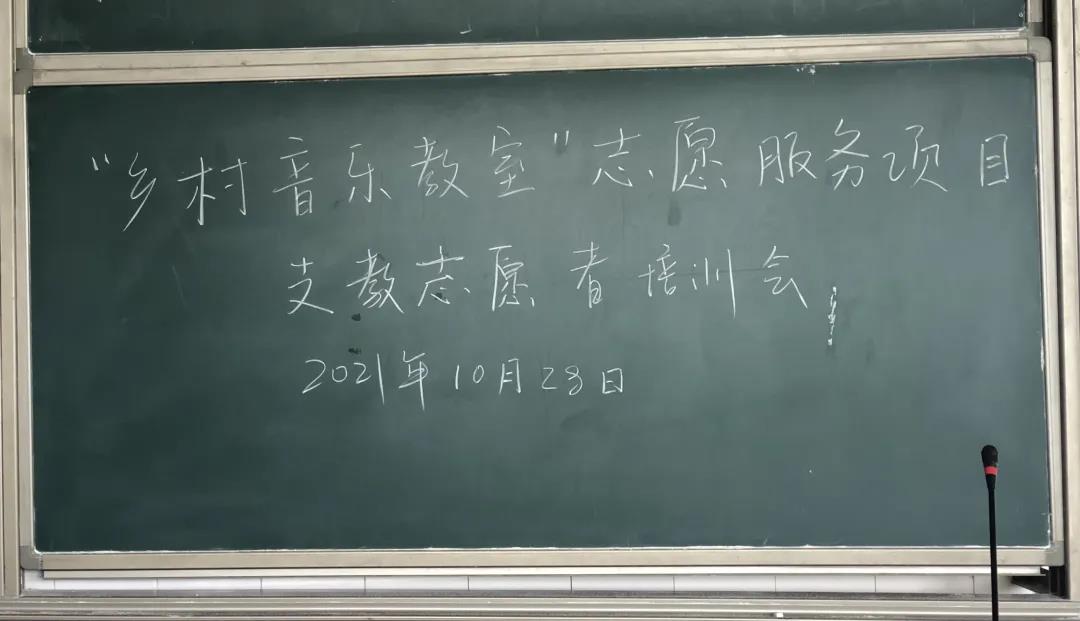 “乡村音乐教室”志愿服务项目
支教志愿者培训会
2021年10月28日